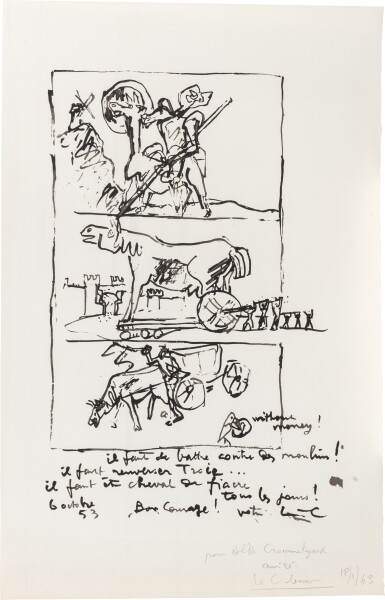 without
money!
il faut se battre contre des moulins!
il faut renverser Troie...
il faut être cheval de fiacre
tous les jours!
6 octobre
53
Bon Courage! votre
pour
amitié
Le Corbusier
18/1/63